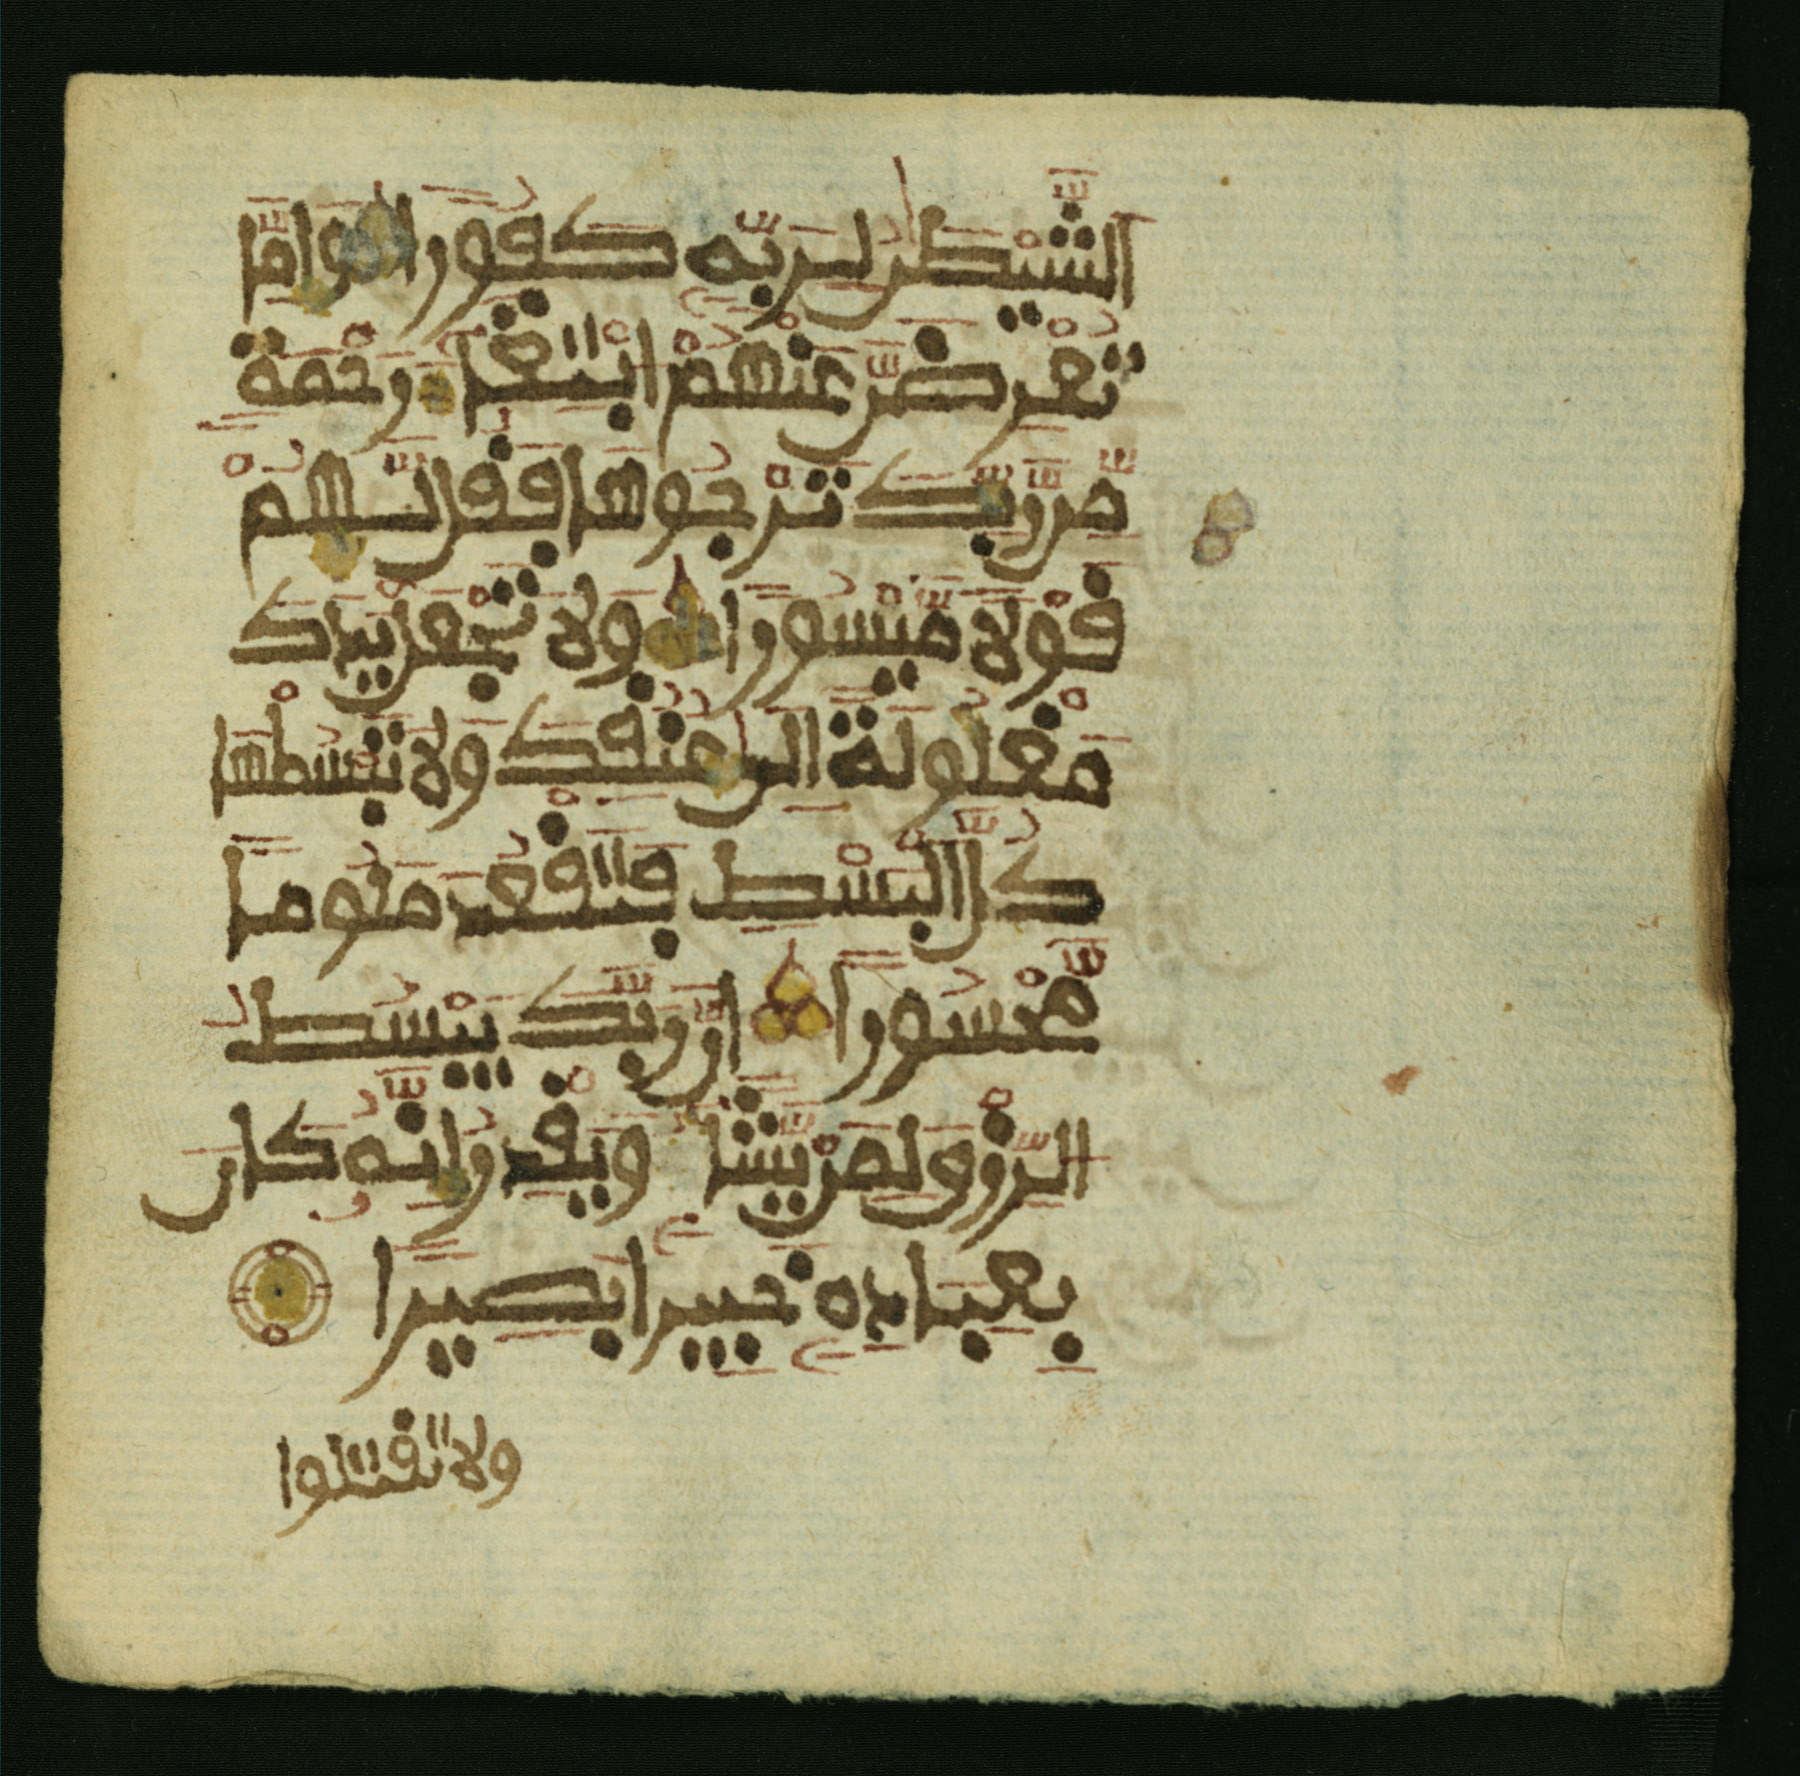 الشيطن لربه كفورا واما
تعرضن عنهم ابتغا رحمة
من ربك ترجوها فقل لهم
قولا ميسورا ولا تجعل يدك
مغلولة الى عنقك ولا تبسطها
كل البسط فتقعد ملوما
محسورا ان ربك يبسط
الرزق لمن يشا ويقدر انه كان
بعباده خبيرا بصيرا
ولا تقتلوا